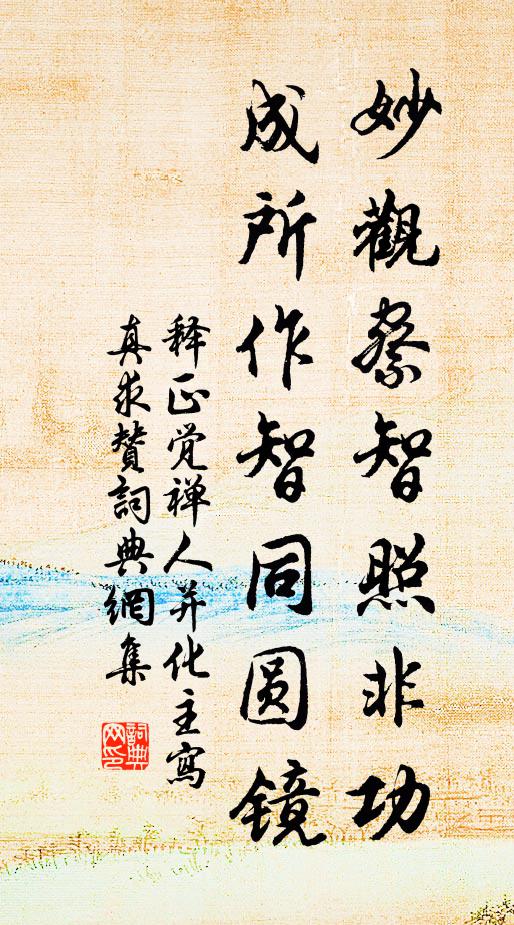 妙觀察智照非功
成所作智同圆鏡
释正觉禅人并化主寫
真求赞詞典網集
詞典
网印